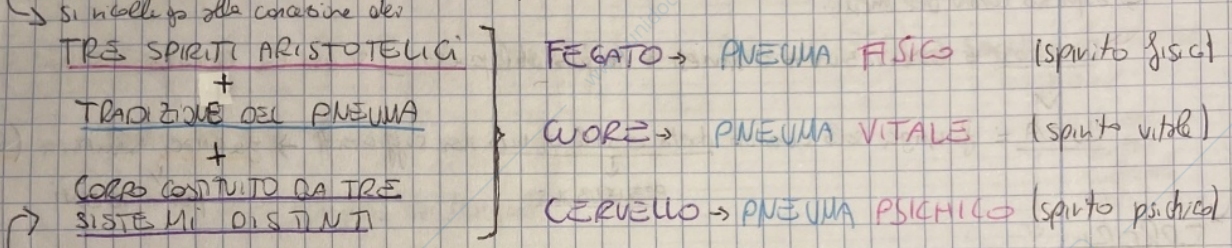 ↳ Si ricollega alla concezione dei
TRE SPIRITI ARISTOTELICI
+
TRADIZIONE DEL PNEUMA
+
CORPO COSTITUITO DA TRE
SISTEMI DISTINTI
FEGATO → PNEUMA FISICO (spirito fisico)
CUORE → PNEUMA VITALE (spirito vitale)
CERVELLO → PNEUMA PSICHICO (spirito psichico)